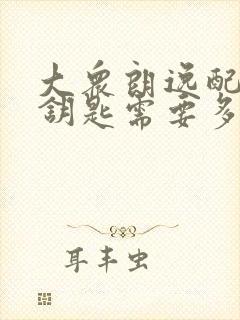 大众朗逸配
钥匙需要多
耳丰虫